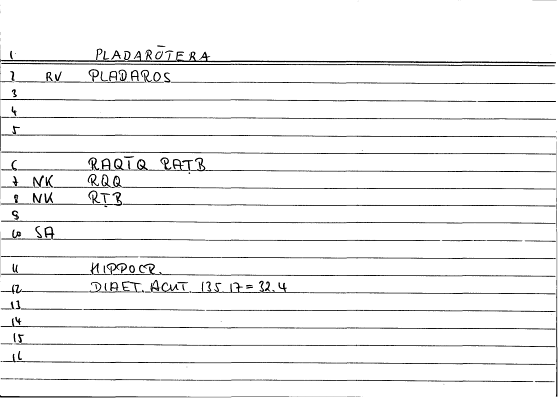 1 PLADARŌTERA
2 RV PLADAROS
3
4
5
6 RAQĪQ RAṬB
7 NK RQQ
8 NK RṬB
9
10 SA
11 HIPPOCR.
12 DIAET. ACUT. 135 17 = 32.4
13
14
15
16